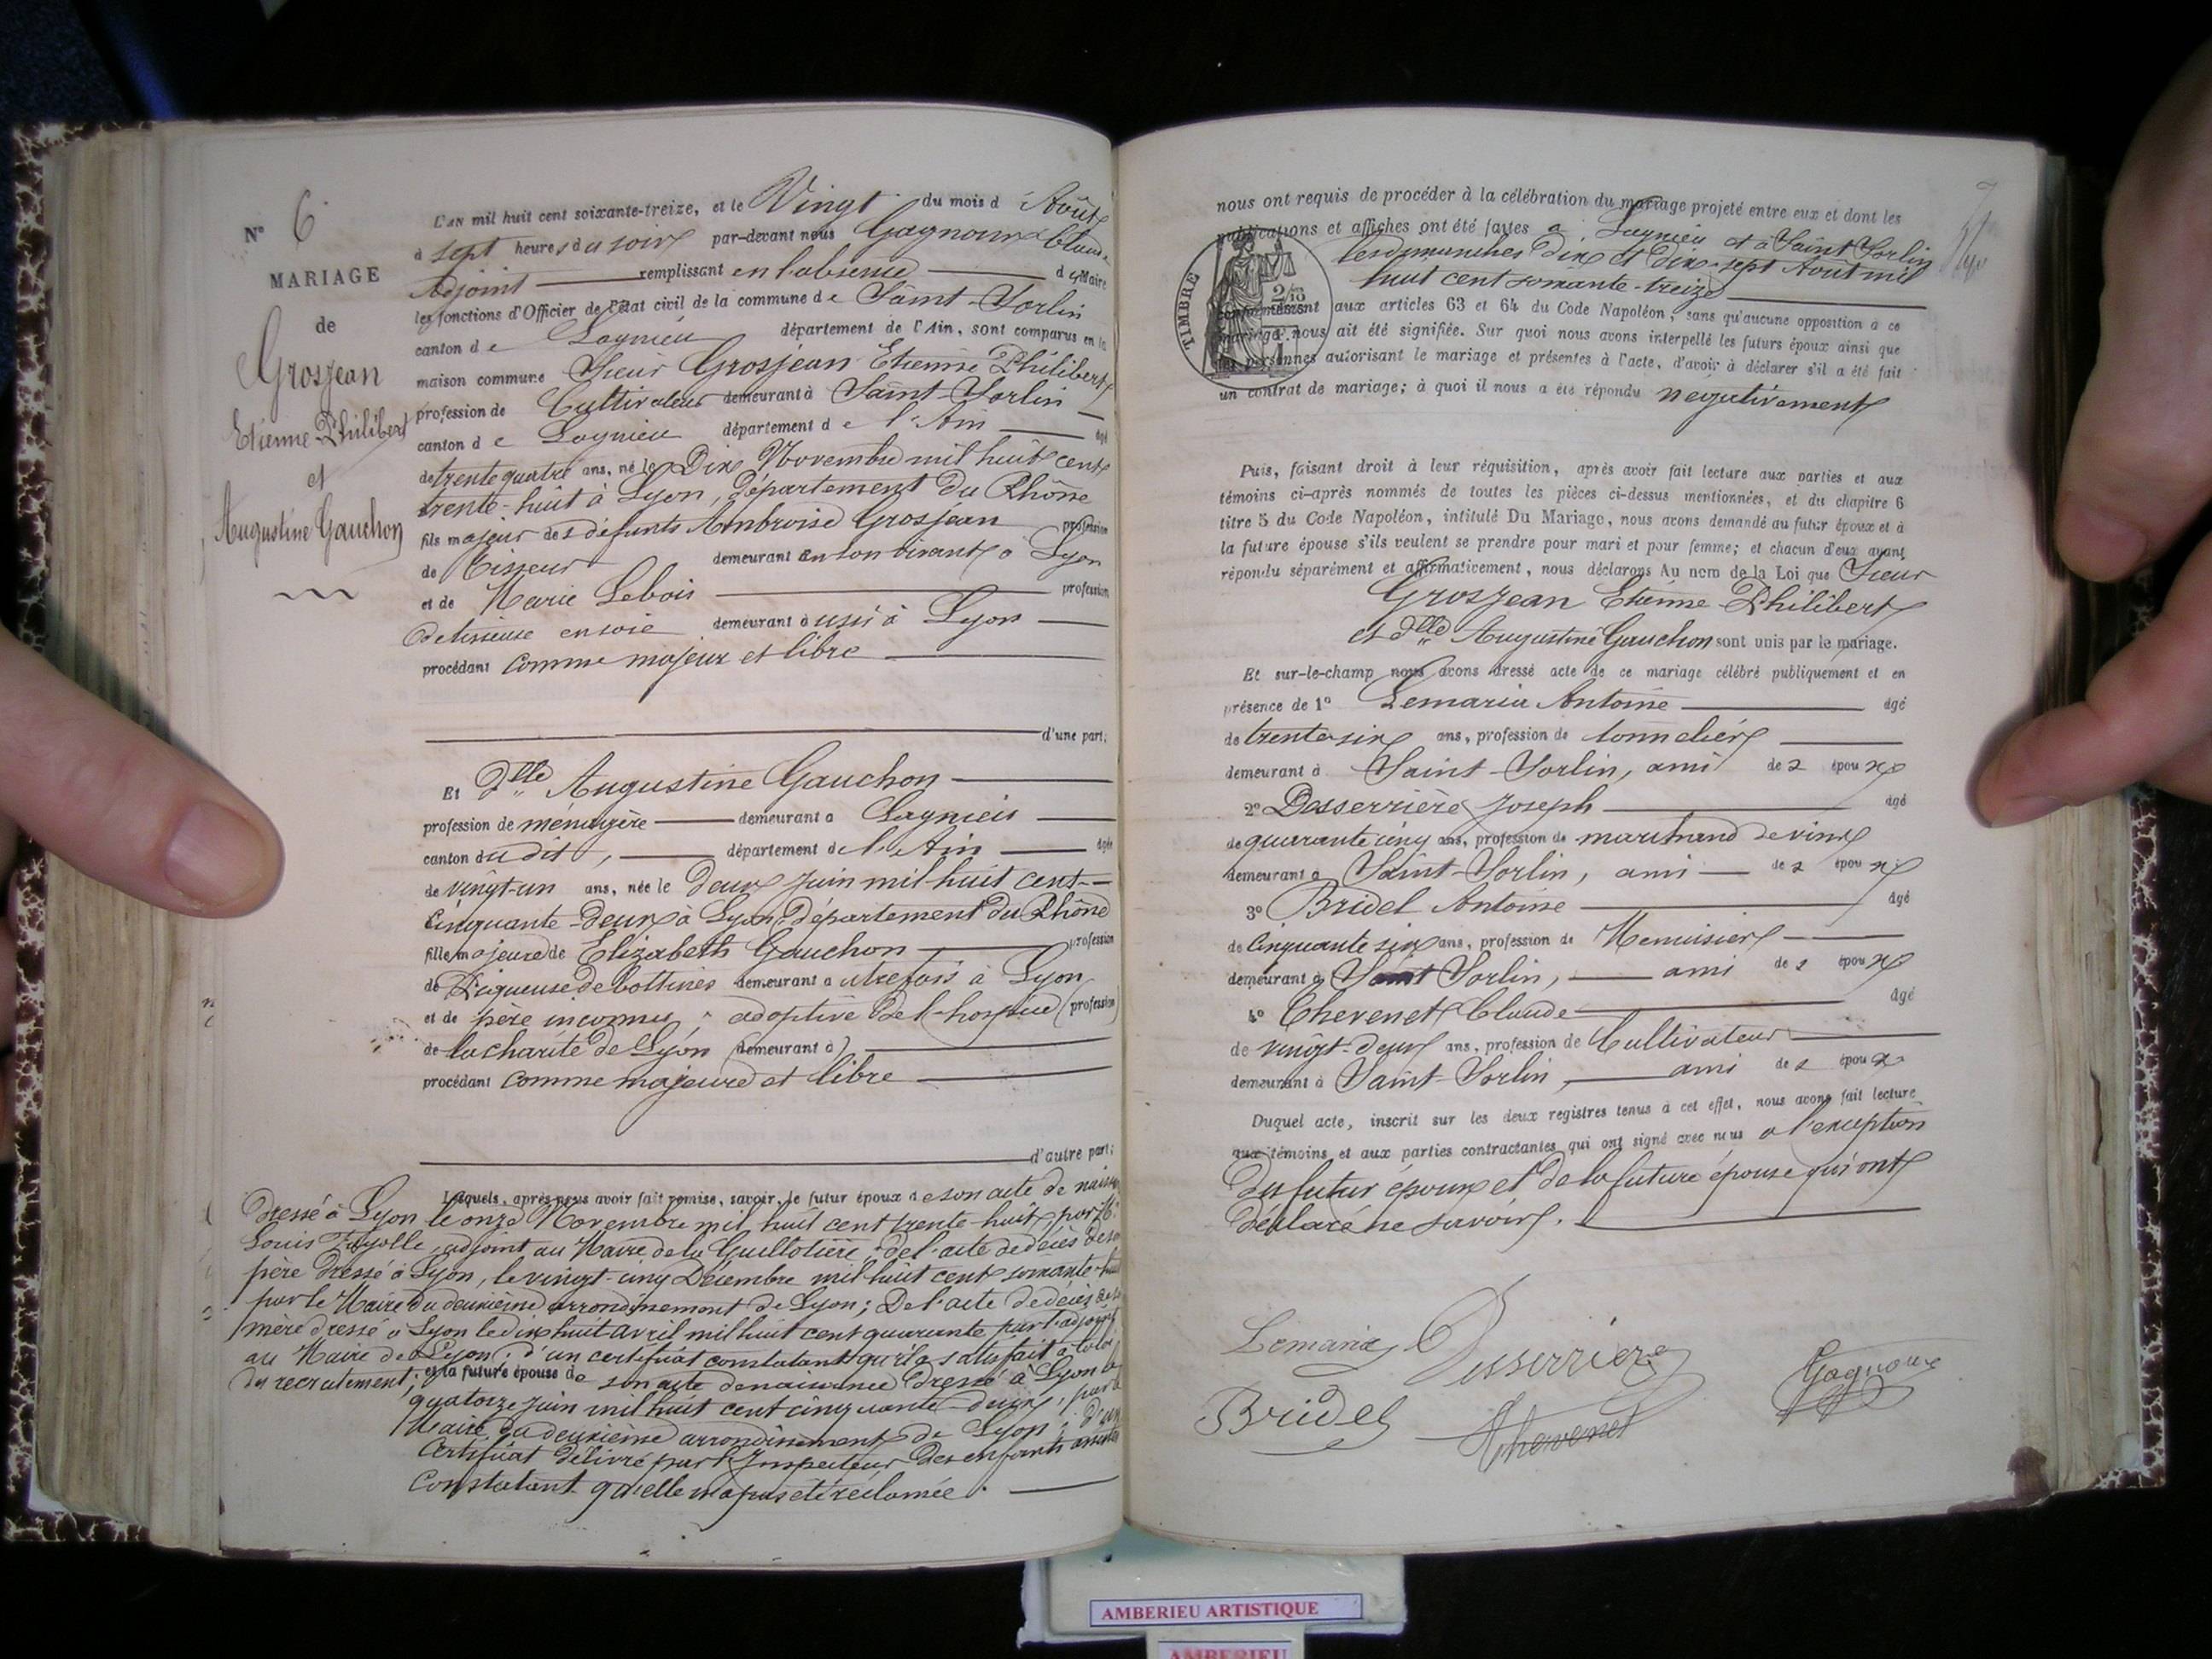 N° 6
MARIAGE
de
Grosjean
Etienne Philibert
et
Augustine Gauchon
L'AN mil huit cent soixante-treize, et le Vingt du mois d'Août
à sept heures du soir par-devant nous Gagnoux Claude
Adjoint remplissant en l'absence du Maire
les fonctions d'Officier de l'état civil de la commune de Saint-Sorlin
canton de Lagnieu département de l'Ain, sont comparus en la
maison commune Sieur Grosjean Etienne Philibert
profession de Cultivateur demeurant à Saint-Sorlin
canton de Lagnieu département de l'Ain âgé
de trente quatre ans, né le Dix Novembre mil huit cent
trente-huit à Lyon, département du Rhône
fils majeur des défunts Ambroise Grosjean profession
de Tisseur demeurant en son vivant à Lyon
et de Marie Lebois profession
de tisseuse en soie demeurant à ussi à Lyon
procédant comme majeur et libre
d'une part;
Et Dlle Augustine Gauchon
profession de ménagère demeurant à Lagnieu
canton dudit, département de l'Ain âgée
de vingt-un ans, née le deux Juin mil huit cent
cinquante-deux à Lyon, département du Rhône
fille majeure de Elizabeth Gauchon profession
de Piqueuse de bottines demeurant autrefois à Lyon
et de père inconnu, adoptive de l'hospice (profession)
de la charité de Lyon (demeurant à)
procédant comme majeure et libre
d'autre part;
Lesquels, après nous avoir fait remise, savoir, le futur époux de son acte de
dressé à Lyon le onze Novembre mil huit cent trente-huit, par Mr
Louis Fayolle, adjoint au Maire de la Guillotière; del'acte de décès de
père dressé à Lyon, le vingt-cinq Décembre mil huit cent soixante
par le Maire du deuxième arrondissement de Lyon; De l'acte de décès de
mère dressé à Lyon le dix huit avril mil huit cent quarante par l'adjoint
au Maire de Lyon; d'un certificat constatant qu'il a satisfait à la loi
du recrutement; et la future épouse de son acte de naissance dressé à Lyon le
quatorze Juin mil huit cent cinquante-deux, par le
Maire du deuxième arrondissement de Lyon; D'un
certificat délivré par l'Inspecteur des enfants
constatant qu'elle n'a pas été réclamée.
nous ont requis de procéder à la célébration du mariage projeté entre eux et dont les
publications et affiches ont été faites à Lagnieu et à Saint Sorlin
les dimanches dix et dix-sept Août mil
huit cent soixante-treize
TIMBRE
2/10
conformément aux articles 63 et 64 du Code Napoléon, sans qu'aucune opposition à ce
mariage nous ait été signifiée. Sur quoi nous avons interpellé les futurs époux ainsi que
les personnes autorisant le mariage et présentes à l'acte, d'avoir à déclarer s'il a été fait
un contrat de mariage; à quoi il nous a été répondu négativement
Puis, faisant droit à leur réquisition, après avoir fait lecture aux parties et aux
témoins ci-après nommés de toutes les pièces ci-dessus mentionnées, et du chapitre 6
titre 5 du Code Napoléon, intitulé Du Mariage, nous avons demandé au futur époux et à
la future épouse s'ils veulent se prendre pour mari et pour femme; et chacun d'eux ayant
répondu séparément et affirmativement, nous déclarons Au nom de la Loi que Sieur
Grosjean Etienne Philibert
et Dlle Augustine Gauchon sont unis par le mariage.
Et sur-le-champ nous avons dressé acte de ce mariage célébré publiquement et en
présence de 1° Lemaria Antoine âgé
de trente six ans, profession de tonnelier
demeurant à Saint-Sorlin, ami des époux
2° Desserrière Joseph âgé
de quarante cinq ans, profession de marchand de vins
demeurant à Saint-Sorlin, ami des époux
3° Bridel Antoine âgé
de Cinquante six ans, profession de Menuisier
demeurant à Saint Sorlin, ami des époux
4° Chevenet Claude âgé
de vingt-deux ans, profession de Cultivateur
demeurant à Saint-Sorlin, ami des époux
Duquel acte, inscrit sur les deux registres tenus à cet effet, nous avons fait lecture
aux témoins et aux parties contractantes qui ont signé avec nous à l'exception
du futur époux et de la future épouse qui ont
déclaré ne savoir.
Lemaria Desserrière
Gagnoux
Bridel Chevenet
AMBERIEU ARTISTIQUE
AMBERIEU